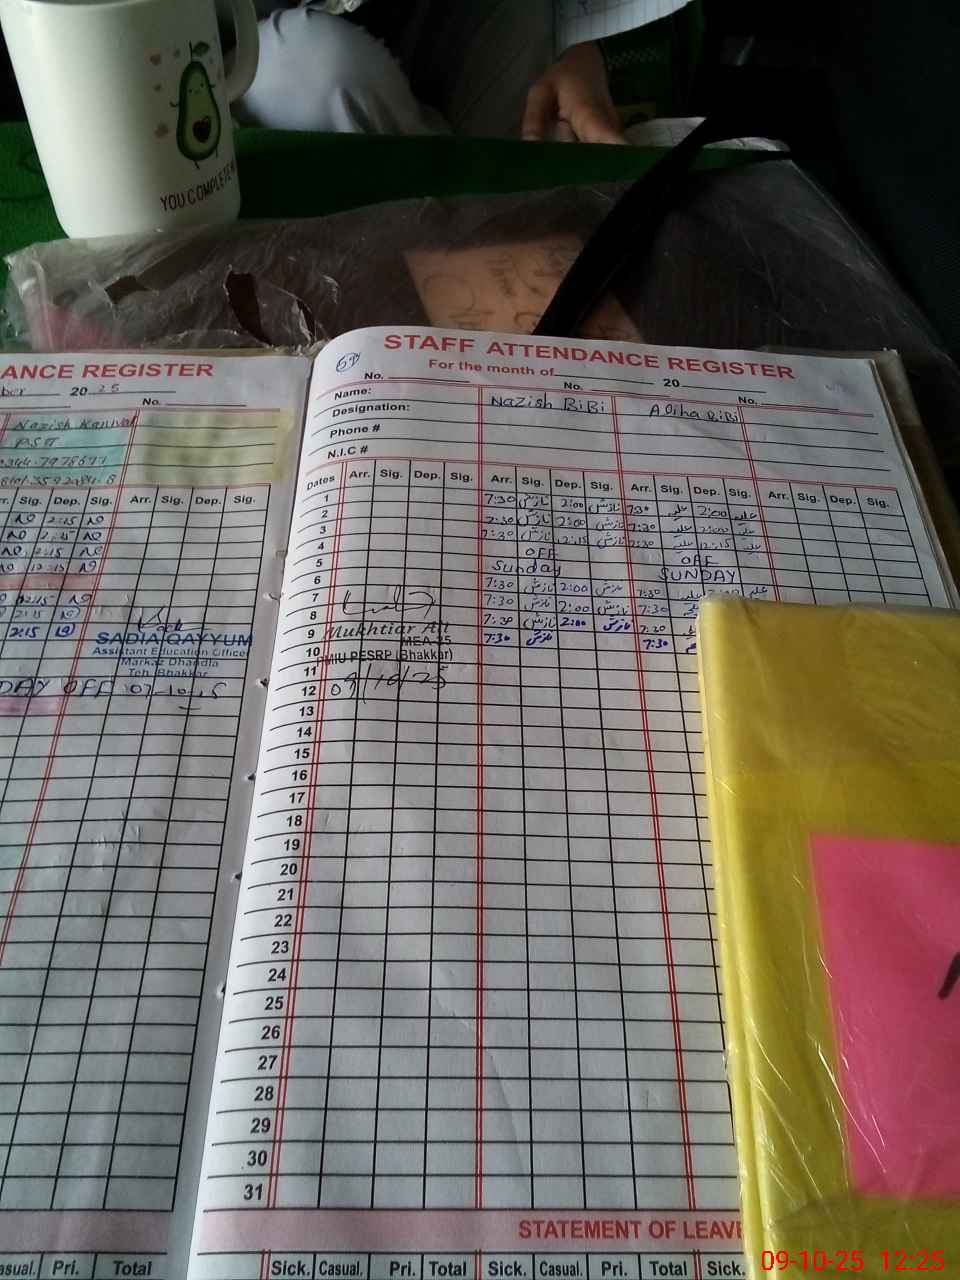 YOU COMPLETE
ANCE REGISTER
ber 2025
No.
Nazish Kanwal
PST
0344-7978677
Sig. Dep. Sig. Arr. Sig. Dep. Sig.
2:15
2:15
12:15
2:15
2:15
2:15
SADIA QAYYUM
Assistant Education Officer
Markaz Dhandla
Teh. Bhakkar
DAY OFF 07-10-25
STAFF ATTENDANCE REGISTER
For the month of 20
No. No. No.
Name: Nazish BiBi Aliha BiBi
Designation:
Phone #
N.I.C #
Dates Arr. Sig. Dep. Sig. Arr. Sig. Dep. Sig. Arr. Sig. Dep. Sig. Arr. Sig. Dep. Sig.
1 7:30 نازش 2:00 نازش 7:30 2:00
2 7:30 نازش 2:00 نازش 7:30 2:00
3 7:30 نازش 12:15 نازش 7:30 12:15
4 OFF OFF
5 Sunday SUNDAY
6 7:30 نازش 2:00 نازش 7:30 2:00
7 7:30 نازش 2:00 نازش 7:30
8 7:30 نازش 2:00 نازش 7:30
9 7:30 نازش 7:30
Mukhtiar Ali
MEA-35
PMIU PESRP (Bhakkar)
09/10/25
10
11
12
13
14
15
16
17
18
19
20
21
22
23
24
25
26
27
28
29
30
31
STATEMENT OF LEAVE
Casual. Pri. Total Sick. Casual. Pri. Total Sick. Casual. Pri. Total Sick.
09-10-25 12:25